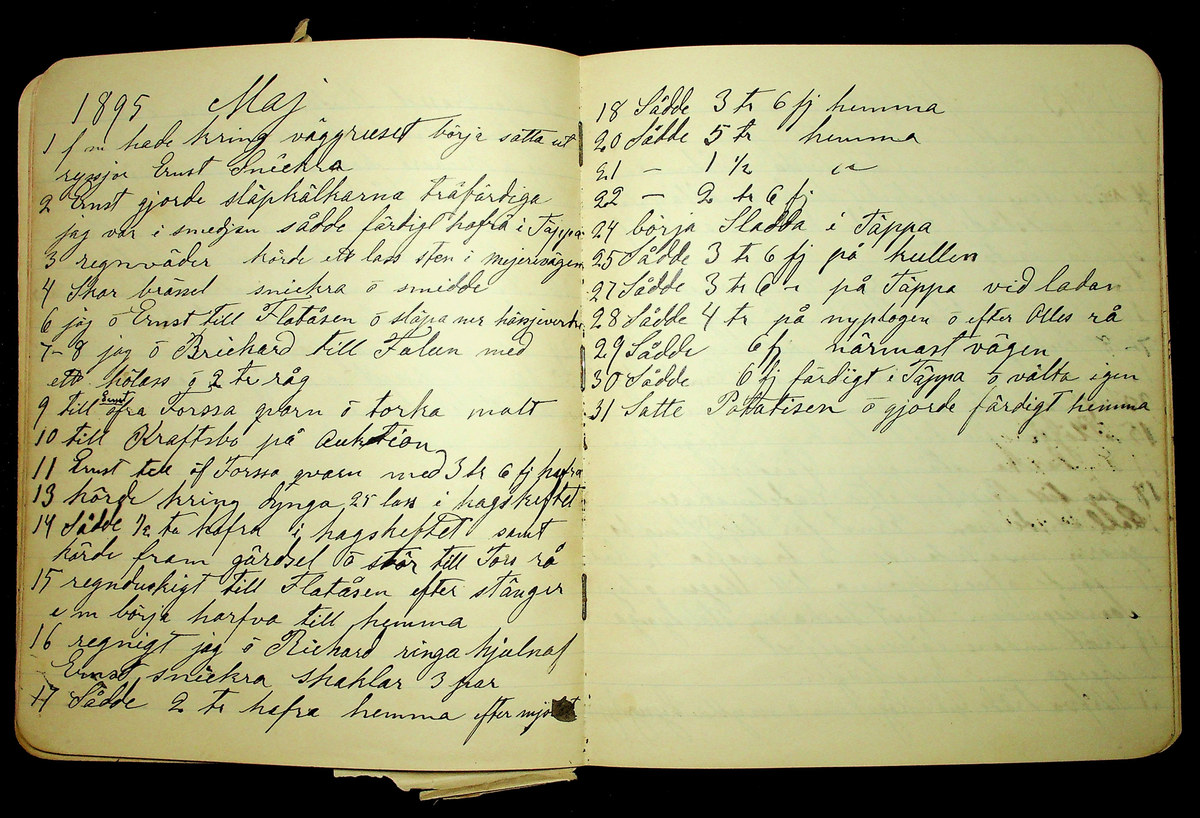 1895 Maj
1 f m hade kring väggruset börja sätta ut
ryssjor Ernst Snickra
2 Ernst gjorde släphälkarna träfärdiga
jag var i smedjan sådde färdigt hafra i Täppa
3 regnväder körde ett lass sten i mejerivägen
4 Skar brased snickra ö smidde
6 jag ö Ernst till Flatåsen ö släpa ner
7-8 jag ö Brickard till Falun med
ett hölass ö 2 tr råg
9 till Ernst öfra Forssa qvarn ö torka malt
10 till Kraftsbo på auktion
11 Ernst till öf Forssa qvarn med 3 tr 6 fj hafra
13 körde kring dynga 25 lass i hagskeftet
14 Sådde 1/2 tu hafra i hagskeftet samt
körde fram gärdsel ö stör till Tors rå
15 regnduskigt till Flatåsen efter stänger
e m börja harfva till hemma
16 regnigt jag ö Richard ringa hjulnaf
Ernst snickra skaklar 3 par
17 Sådde 2 tr hafra hemma efter
18 Sådde 3 tr 6 fj hemma
20 Sådde 5 tr hemma
21 — 1 1/2 "
22 — 2 tr 6 fj
24 börja Sladda i Täppa
25 Sådde 3 tr 6 fj på kullen
27 Sådde 3 tr 6 - på Täppa vid ladan
28 Sådde 4 tr på nyplogen ö efter Olles rå
29 Sådde 6 fj närmast vägen
30 Sådde 6 fj färdigt i Täppa ö välta igen
31 Satte Potatisen ö gjorde färdigt hemma